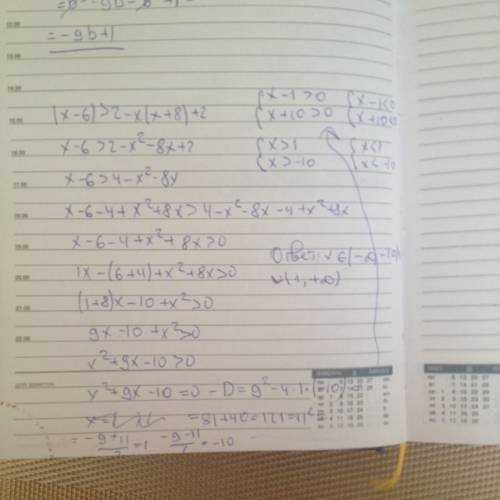 = -9b+1
(x-6)>2-x(x+8)+2
x-6>2-x²-8x+2
x-6>4-x²-8x
x-6-4+x²+8x>4-x²-8x-4+x²+8x
x-6-4+x²+8x>0
1x-(6+4)+x²+8x>0
(1+8)x-10+x²>0
9x-10+x²>0
x²+9x-10>0
x²+9x-10=0 - D=9²-4·1·(-10)
=81+40=121=11²
= -9+11/2 =1 -9-11/2 = -10
{x-1>0
x+10>0
{x-1<0
x+10<0
{x>1
x>-10
{x<1
x<-10
Ответ: x∈(-∞,-10)
∪(1,+∞)